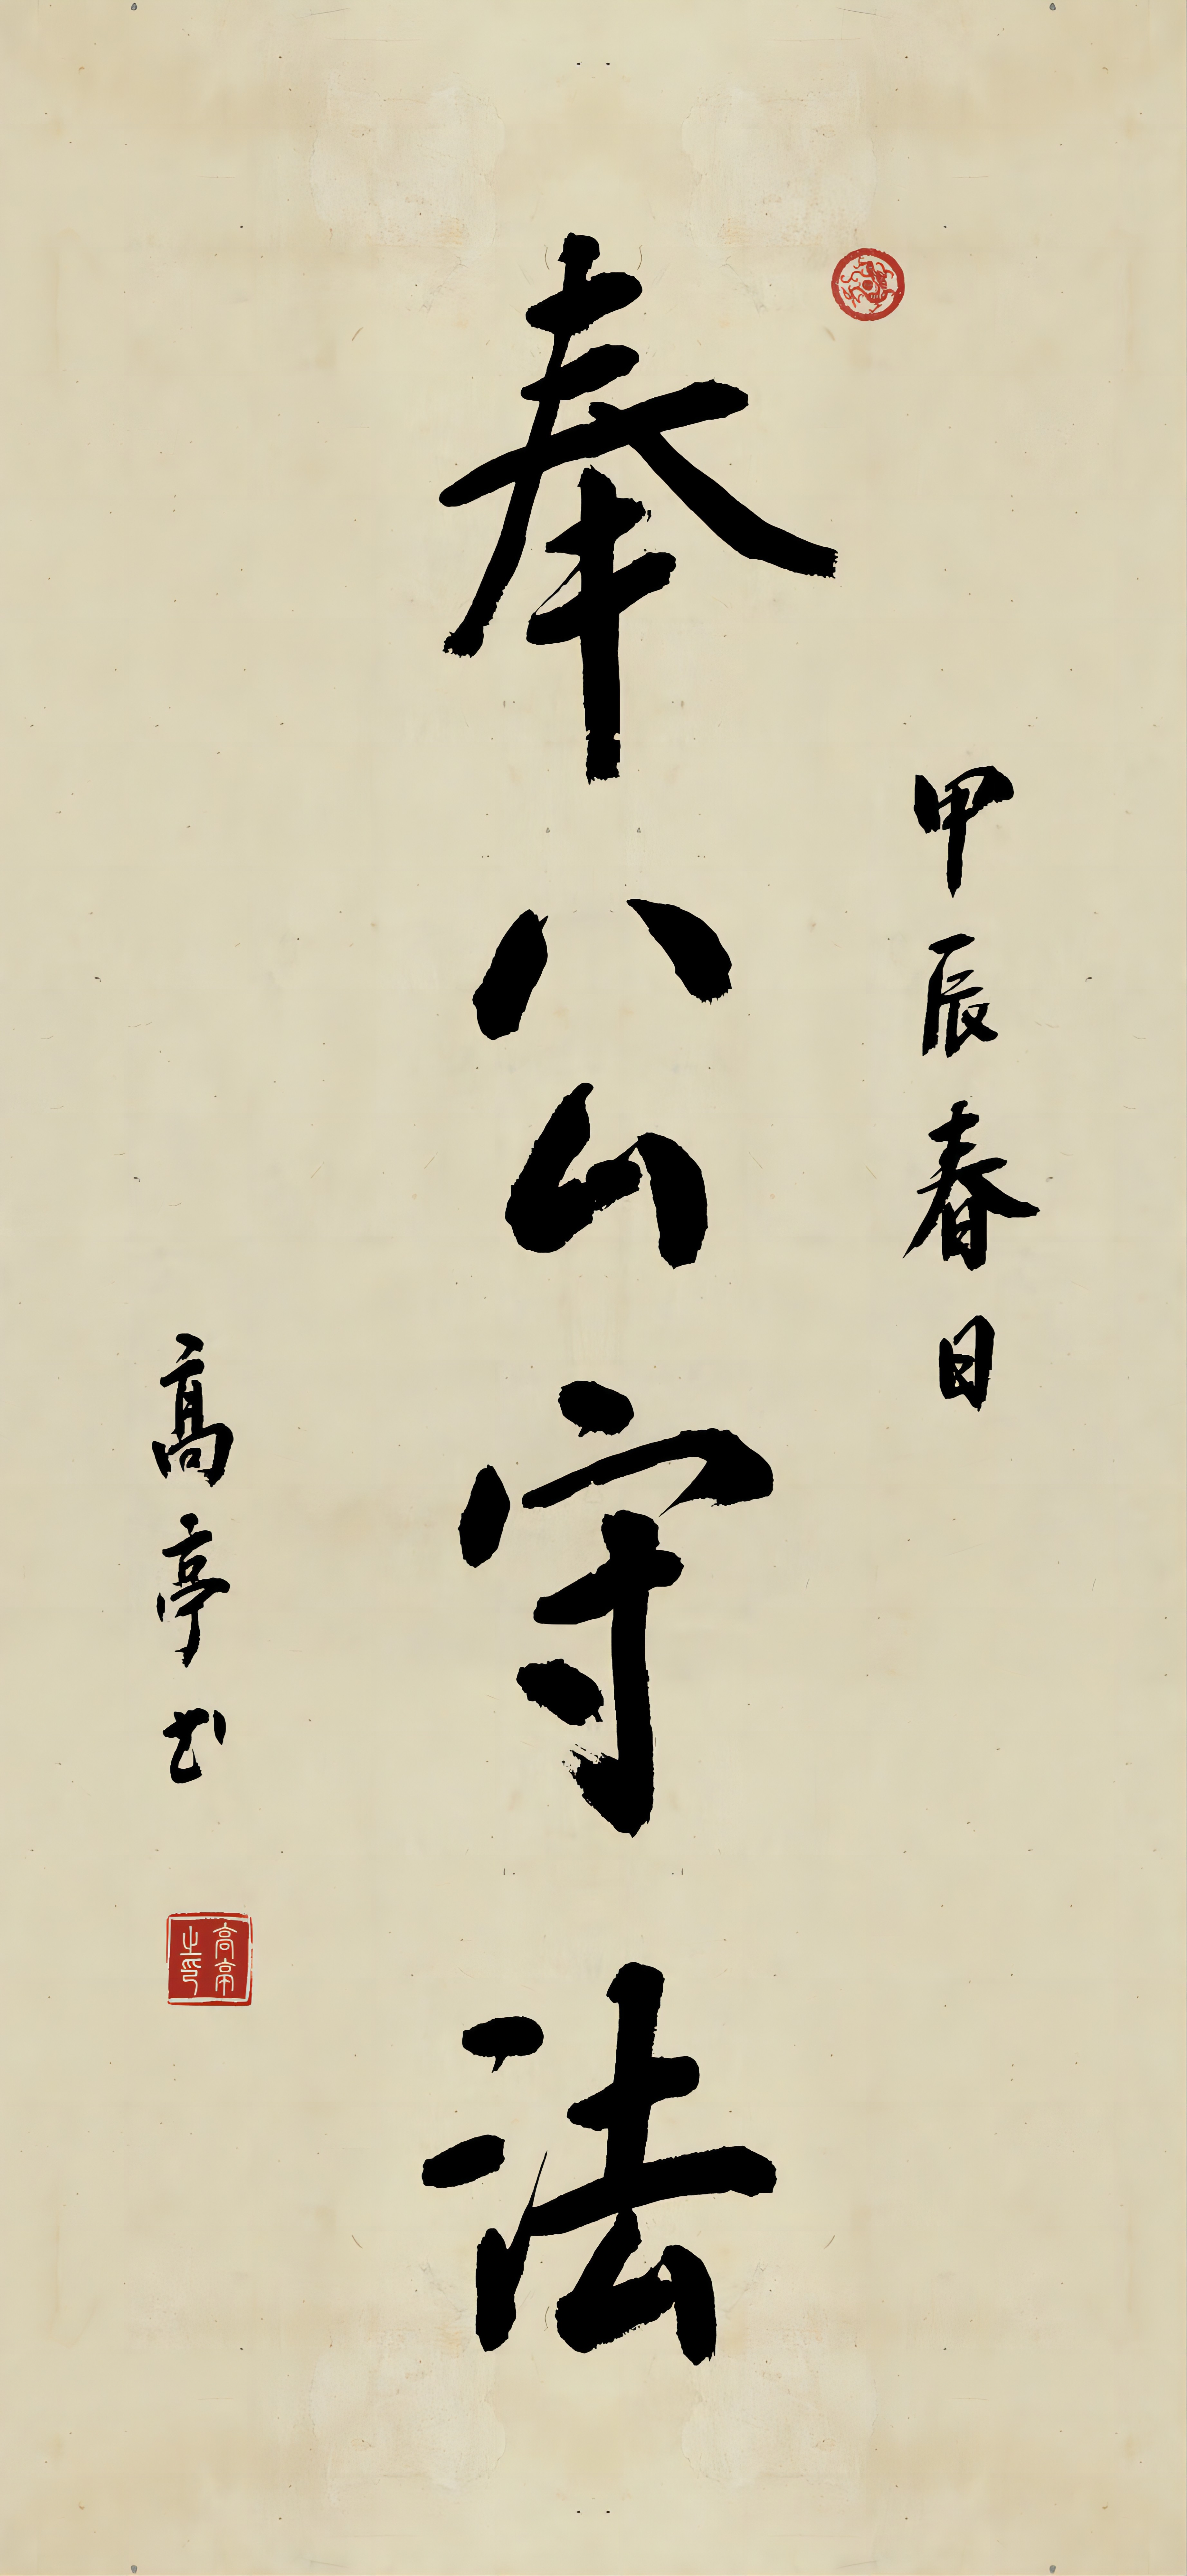 甲辰春日
奉公守法
高亭书
高亭之印